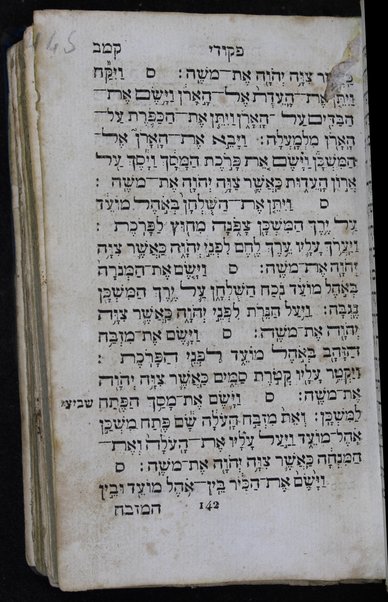 145
פקודי קמב
כַּאֲשֶׁר צִוָּה יְהוָה אֶת־מֹשֶׁה׃ ס וַיִּקַּח
וַיִּתֵּן אֶת־הָעֵדֻת אֶל־הָאָרֹן וַיָּשֶׂם אֶת־
הַבַּדִּים עַל־הָאָרֹן וַיִּתֵּן אֶת־הַכַּפֹּרֶת עַל־
הָאָרֹן מִלְמָעְלָה׃ וַיָּבֵא אֶת־הָאָרֹן אֶל־
הַמִּשְׁכָּן וַיָּשֶׂם אֵת פָּרֹכֶת הַמָּסָךְ וַיָּסֶךְ עַל
אֲרוֹן הָעֵדוּת כַּאֲשֶׁר צִוָּה יְהוָה אֶת־מֹשֶׁה׃
ס וַיִּתֵּן אֶת־הַשֻּׁלְחָן בְּאֹהֶל מוֹעֵד
עַל יֶרֶךְ הַמִּשְׁכָּן צָפֹנָה מִחוּץ לַפָּרֹכֶת׃
וַיַּעֲרֹךְ עָלָיו עֵרֶךְ לֶחֶם לִפְנֵי יְהוָה כַּאֲשֶׁר צִוָּה
יְהוָה אֶת־מֹשֶׁה׃ ס וַיָּשֶׂם אֶת־הַמְּנֹרָה
בְּאֹהֶל מוֹעֵד נֹכַח הַשֻּׁלְחָן עַל יֶרֶךְ הַמִּשְׁכָּן
נֶגְבָּה׃ וַיַּעַל הַנֵּרֹת לִפְנֵי יְהוָה כַּאֲשֶׁר צִוָּה
יְהוָה אֶת־מֹשֶׁה׃ ס וַיָּשֶׂם אֶת־מִזְבַּח
הַזָּהָב בְּאֹהֶל מוֹעֵד לִפְנֵי הַפָּרֹכֶת׃
וַיַּקְטֵר עָלָיו קְטֹרֶת סַמִּים כַּאֲשֶׁר צִוָּה יְהוָה
אֶת־מֹשֶׁה׃ ס וַיָּשֶׂם אֶת־מָסַךְ הַפֶּתַח שביעי
לַמִּשְׁכָּן׃ וְאֵת מִזְבַּח הָעֹלָה שָׂם פֶּתַח מִשְׁכַּן
אֹהֶל־מוֹעֵד וַיַּעַל עָלָיו אֶת־הָעֹלָה וְאֶת־
הַמִּנְחָה כַּאֲשֶׁר צִוָּה יְהוָה אֶת־מֹשֶׁה׃ ס
וַיָּשֶׂם אֶת־הַכִּיֹּר בֵּין־אֹהֶל מוֹעֵד וּבֵין
142 המזבח